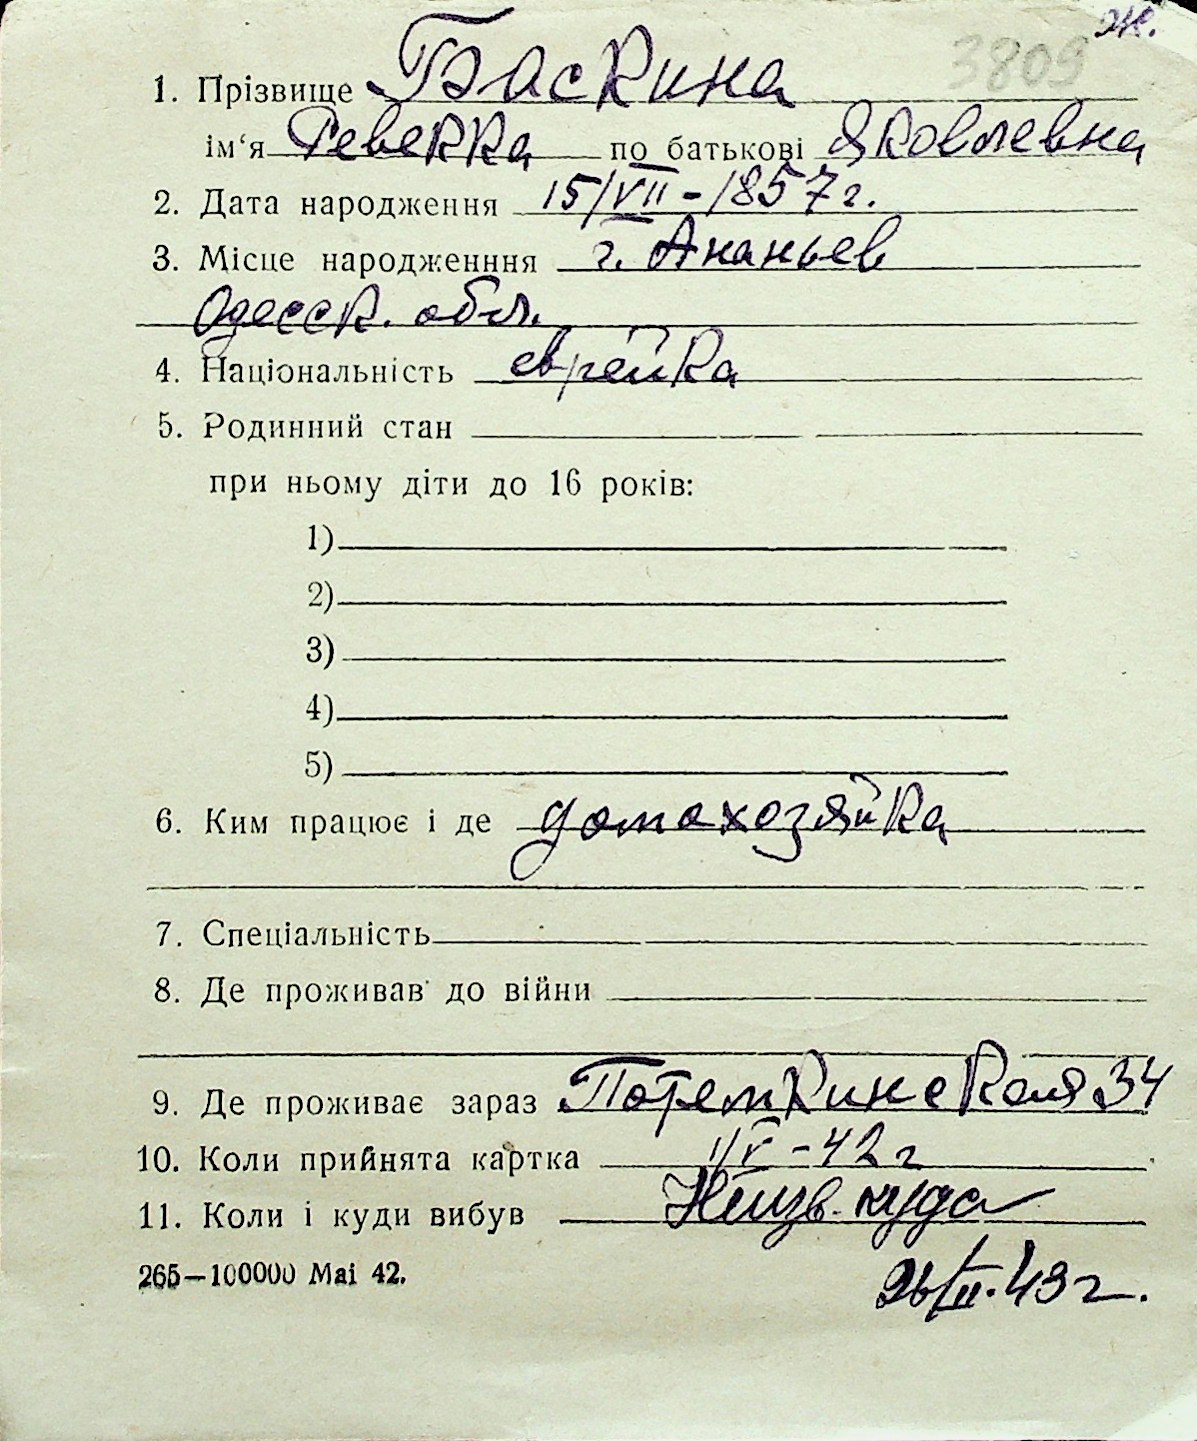 Ж.
3809
1. Прізвище Баскина
ім‘я Ревекка по батькові Яковлевна
2. Дата народження 15/VII - 1857 г.
3. Місце народженння г. Ананьев
Одесск. обл.
4. Національність еврейка
5. Родинний стан
при ньому діти до 16 років:
1)
2)
3)
4)
5)
6. Ким працює і де домохозяйка
7. Спеціальність
8. Де проживав до війни
9. Де проживає зараз Потемкинская 34
10. Коли прийнята картка 1/V - 42 г
11. Коли і куди вибув Неизв. куда
265—100000 Mai 42.
26/II. 43 г.